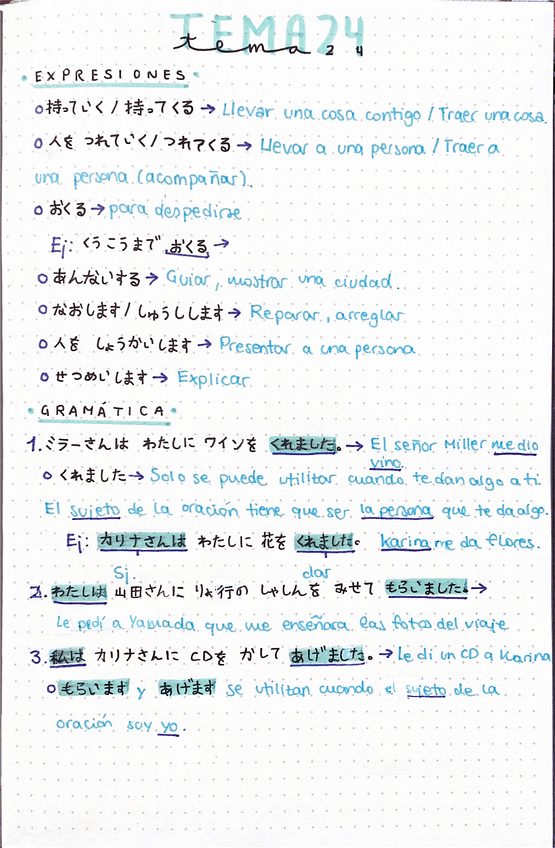 TEMA24
tema 24
EXPRESIONES
持っていく / 持ってくる → Llevar una cosa contigo / Traer una cosa.
人を つれていく/つれてくる → Llevar a una persona / Traer a
una persona (acompañar).
おくる → para despedirse
Ej: くうこうまで おくる →
あんないする → Guiar, mostrar una ciudad.
なおします/しゅうしします → Reparar, arreglar
人を しょうかいします → Presentar a una persona
せつめいします → Explicar
GRAMÁTICA
1. ミラーさんは わたしに ワインを くれました。→ El señor Miller me dio
vino.
くれました → Solo se puede utilizar cuando te dan algo a ti.
El sujeto de la oración tiene que ser la persona que te da algo.
Ej: カリナさんは わたしに 花を くれました。 Karina me da flores.
Sj. dar
2. わたしは 山田さんに りょ行の しゃしんを みせて もらいました。→
Le pedí a Yamada que me enseñara las fotos del viaje
3. 私は カリナさんに CDを かして あげました。→ Le di un CD a Karina
もらいます y あげます se utilizan cuando el sujeto de la
oración soy yo.